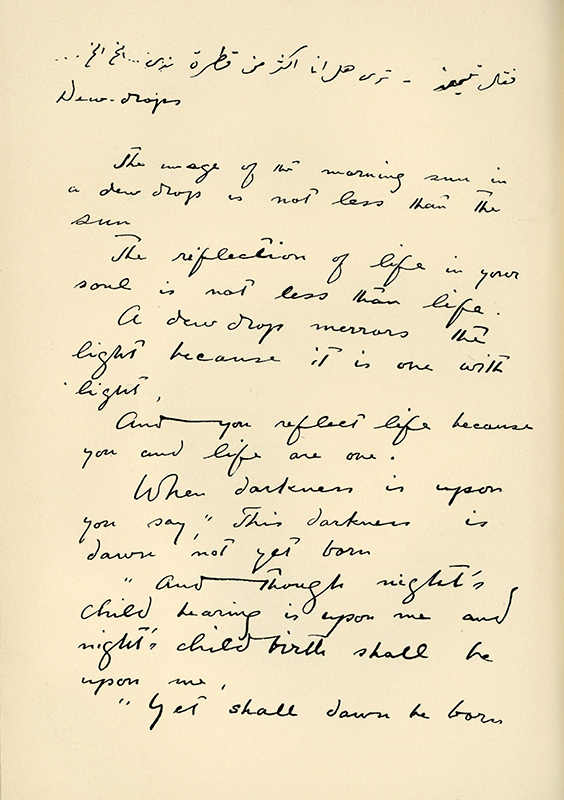 فقال - ترى هل انا اكثر من قطرة ندى... الخ الخ...
Dew-drops
The image of the morning sun in
a dew drop is not less than the
sun
The reflection of life in your
soul is not less than life.
A dew drop merrors the
light because it is one with
light,
And you reflect life because
you and life are one.
When darkness is upon
you say, "This darkness is
dawn not yet born
"And Though night's
child bearing is upon me and
night's child birth shall be
upon me,
"Yet shall dawn be born